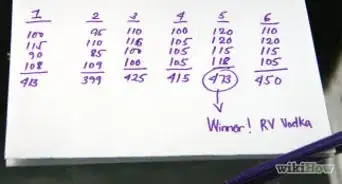 1 2 3 4 5 6
100 95 110 100 120 110
115 110 115 105 120 120
90 85 100 105 115 115
108 109 100 105 118 105
413 399 425 415 473 450
Winner! RV Vodka
wikiHow